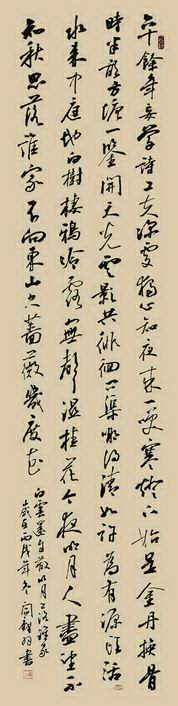 六十餘年妄學詩工夫深處獨心知夜來一笑寒燈下始是金丹換骨
時半畝方塘一鑒開天光雲影共徘徊問渠那得清如許為有源頭活
水來中庭地白樹棲鴉冷露無聲濕桂花今夜明月人盡望不
知秋思落誰家不向東山久薔薇幾度花
白雲還自散明月落誰家
歲在丙戌年冬書